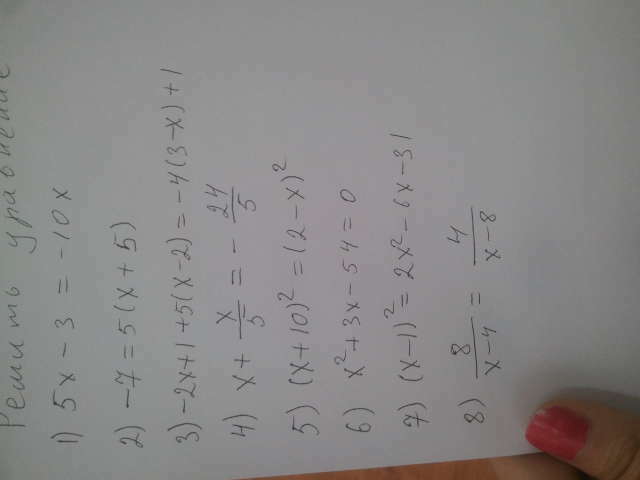 Решить уравнение
1) 5x - 3 = -10x
2) -7 = 5(x + 5)
3) -2x+1 +5(x-2) = -4(3-x)+1
4) x + x/5 = - 24/5
5) (x+10)² = (2-x)²
6) x² + 3x - 54 = 0
7) (x-1)² = 2x² - 6x - 31
8) 8/(x-4) = 4/(x-8)